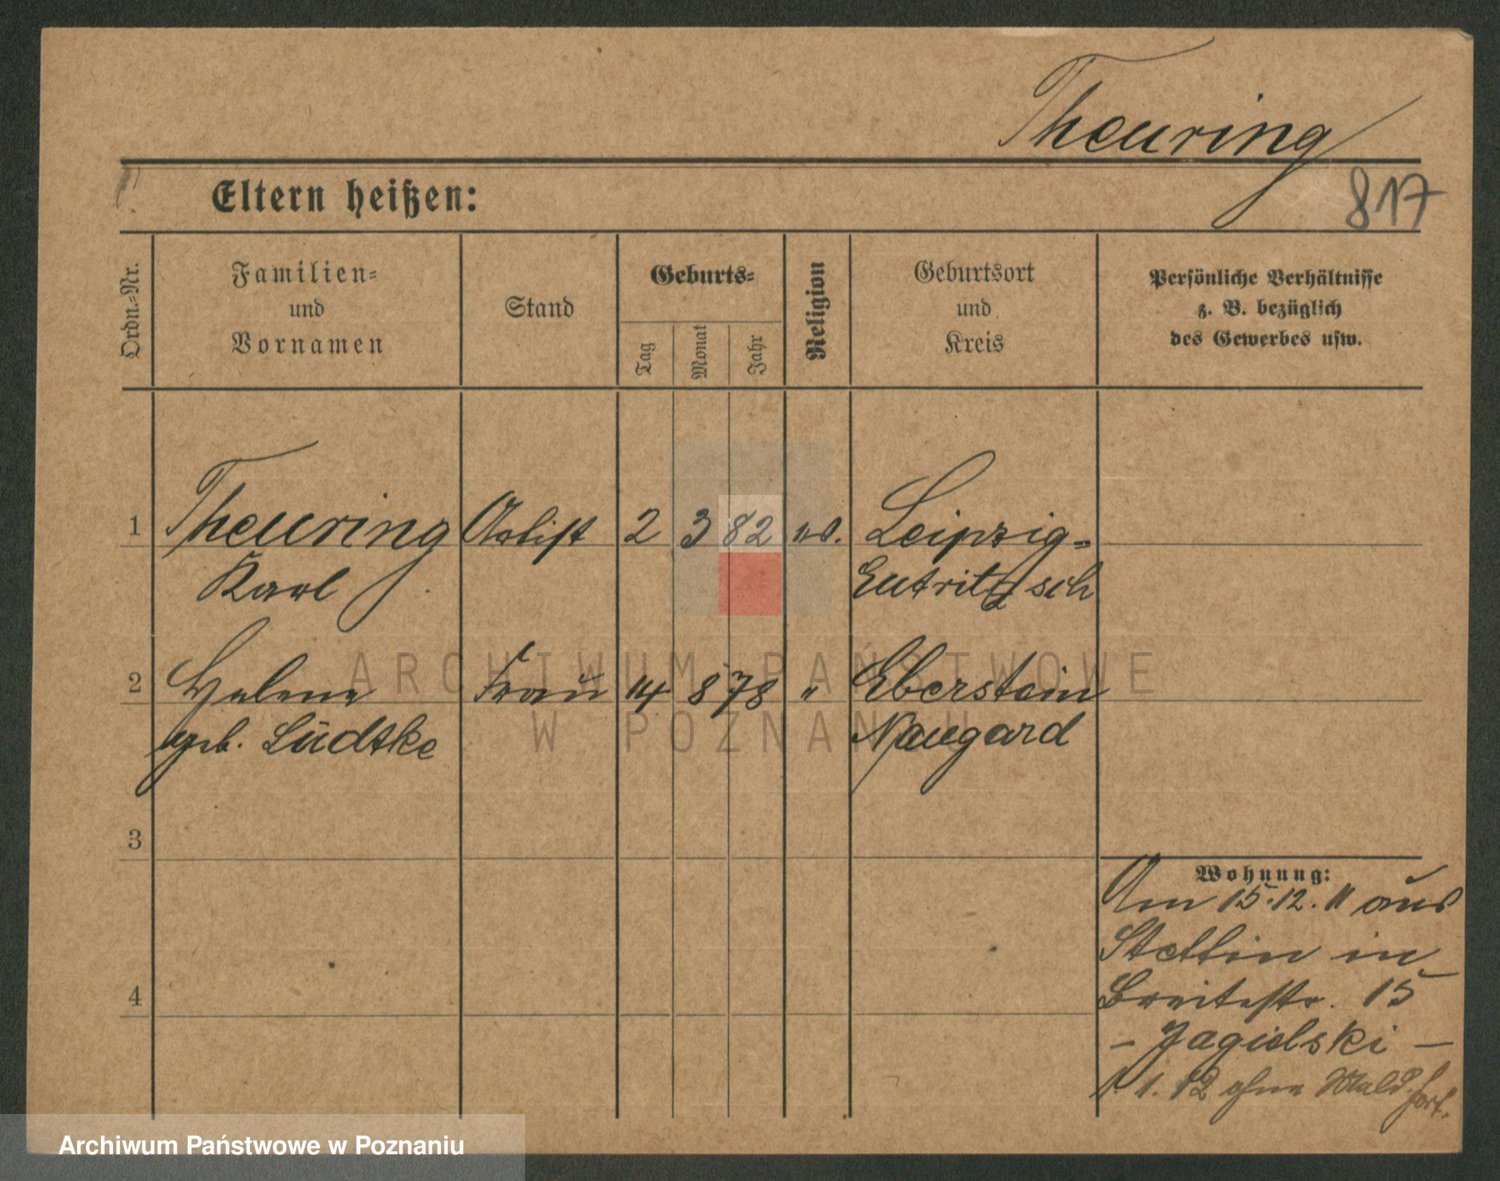 Theuring
817
Eltern heißen:
Ordn.-Nr.
Familien-
und
Vornamen
Stand
Geburts-
Tag
Monat
Jahr
Religion
Geburtsort
und
Kreis
Persönliche Verhältnisse
z. B. bezüglich
des Gewerbes usw.
1 Theuring Artist 2 3 82 ev. Leipzig-
Karl Eutritzsch
2 Helene Frau 14 8 78 " Eberstein
geb. Lüdtke Naugard
3
4
Wohnung:
Am 15.12.11 aus
Stettin in
Breitestr. 15
– Jagielski –
1.1.12 ohne Meld. fort.
ARCHIWUM PAŃSTWOWE
W POZNANIU
Archiwum Państwowe w Poznaniu